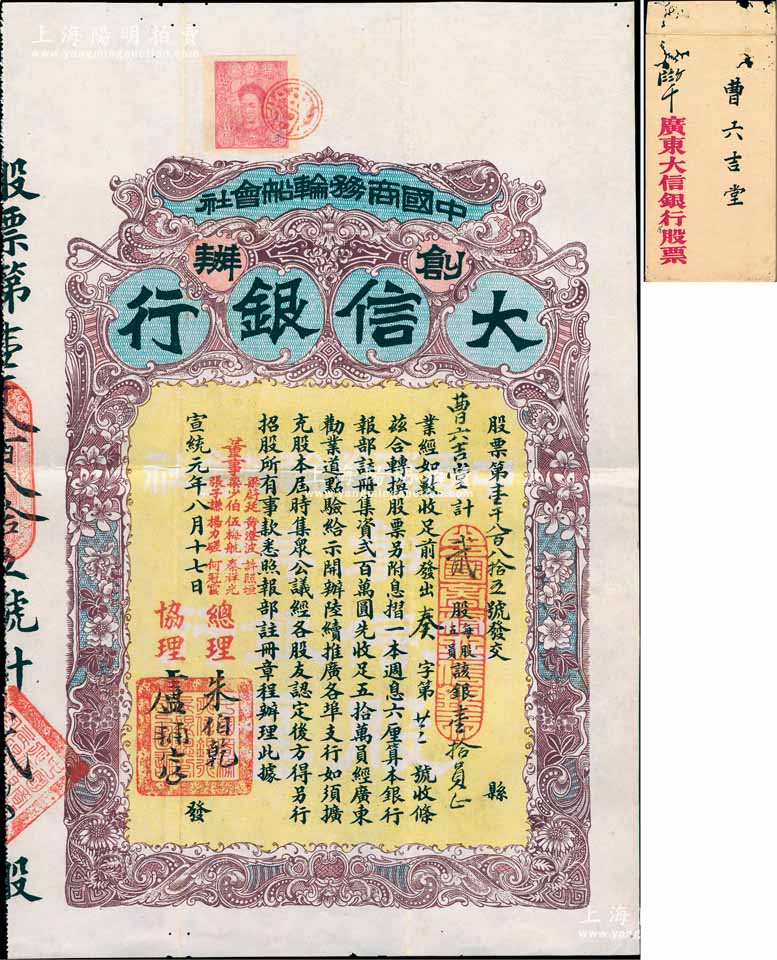 上海陽明拍賣
www.yangmingauction.com
中國商務輪船會社
創辦
大信銀行
股票第壹千八百八拾五號發交
縣
曹六吉堂計貳股每股五員該銀壹拾員正
業經如數收足前發出奏字第廿二號收條
茲合轉換股票另附息摺一本週息六厘算本銀行
報部註冊集資弍百萬圓先收足五拾萬員經廣東
勸業道點驗給示開辦陸續推廣各埠支行如須擴
充股本屆時集眾公議經各股友認定後方得另行
招股所有事欵悉照報部註冊章程辦理此據
董事
梁少伯 伍裕航 秦祥光
張子謙 楊力磋 何冠賓
宣統元年八月十七日
總理 朱伯乾
協理
發
股票第壹千八百八拾五號計弍股
曹六吉堂
廣東大信銀行股票